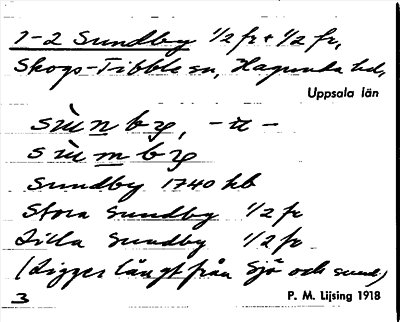 1-2 Sundby 1/2 fr + 1/2 fr,
Skogs-Tibble sn, Hagunda hd,
Uppsala län
sùnby, -ù-
sùmby
Sundby 1740 kb
Stora Sundby 1/2 fr
Lilla Sundby 1/2 fr
(Ligger långt från Sjö och sund)
3 P. M. Lijsing 1918